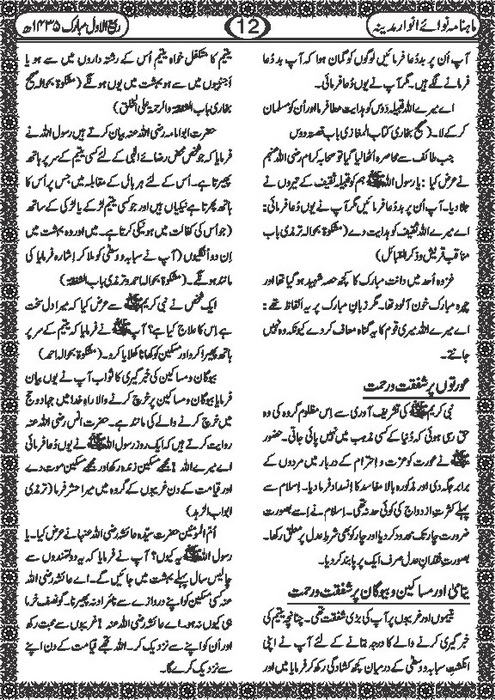 ماہنامہ نوائے انوارِ مدینہ
12
ربیع الاول مبارک ۱۴۳۵ھ
آپ اُن پر بددُعا فرمائیں لوگوں کو گمان ہوا کہ آپ بددُعا
فرمانے لگے ہیں۔ مگر آپ نے یوں دُعا فرمائی۔
اے میرے اللہ قبیلہ دَوس کو ہدایت عطا فرما اور اُن کو مسلمان
کرکے لا۔ (صحیح بخاری کتاب المغازی باب قصتہ دوس
جب طائف سے محاصرہ اُٹھا لیا گیا تو صحابہ کرام رضی اللہ عنہم
نے عرض کیا: یا رسول اللہ ﷺ ہم کو قبیلہ ثقیف کے تیروں نے
جلا دیا۔ آپ اُن پر بددُعا فرمائیں مگر آپ نے یوں دُعا فرمائی:
اے میرے اللہ ثقیف کو ہدایت دے (مشکوۃ بحوالہ ترمذی باب
مناقب قریش و ذکر القبائل)
غزوہ اُحد میں دانت مبارک کا کچھ حصہ شہید ہو گیا تھا اور
چہرہ مبارک خون آلود تھا۔ مگر زبانِ مبارک پر یہ الفاظ تھے:
اے میرے اللہ میری قوم کا یہ گناہ معاف کر دے کیونکہ وہ نہیں
جانتے۔
عورتوں پر شفقت و رحمت
نبی کریم ﷺ کی تشریف آوری سے اِس مظلوم گروہ کی وہ
حق رسی ہوئی کہ دُنیا کے کسی مذہب میں نہیں پائی جاتی۔ حضور
ﷺ نے عورت کو عزت و احترام کے دربار میں مردوں کے
برابر جگہ دی اور مذکورہ بالا مفاسد کا انسداد فرما دیا۔ اِسلام سے
پہلے کثرتِ ازدواج کی کوئی حد نہ تھی۔ اِسلام نے اِسے بصورت
ضرورت چار تک محدود کر دیا اور چار کو بھی شرطِ عدل پر معلق رکھا۔
بصورت فقدانِ عدل صرف ایک پر پابند کر دیا۔
یتامیٰ اور مساکین و بیوگان پر شفقت و رحمت
یتیموں اور غریبوں پر آپ کی بڑی شفقت تھی۔ چنانچہ یتیم کی
خبرگیری کرنے والے کا درجہ بتانے کے لئے آپ نے اپنی
انگشتِ سبابہ و وسطی کے درمیان کچھ کشادگی رکھ کر فرمایا میں اور
یتیم کا متکفل خواہ یتیم اُس کے رشتہ داروں میں سے ہو یا
اَجنبیوں میں سے ہو بہشت میں یوں ہوں گے (مشکوۃ بحوالہ صحیح
بخاری باب الشفقتہ والرحمۃ علی الخلق)
حضرت ابو امامہ رضی اللہ عنہ بیان کرتے ہیں رسول اللہ نے
فرمایا کہ جو شخص محض رضائے الٰہی کے لئے کسی یتیم کے سر پر ہاتھ
پھیرتا ہے۔ اُس کے لئے ہر بال کے مقابلہ میں جس پر اُس کا
ہاتھ پھرتا ہے نیکیاں ہیں اور جو کسی یتیم لڑکے یا لڑکی کے ساتھ
(جو اُس کی کفالت میں ہو نیکی کرتا ہے۔ میں اور وہ بہشت میں
اِن دو اُنگلیوں (آپ نے سبابہ و وسطی کو ملا کر اِشارہ فرمایا کی
مانند ہوں گے)۔ (مشکوۃ بحوالہ احمد و ترمذی باب الشفقۃ)
ایک شخص نے نبی کریم ﷺ سے عرض کیا کہ میرا دل سخت
ہے اِس کا علاج کیا ہے؟ آپ ﷺ نے فرمایا کہ یتیم کے سر پر
ہاتھ پھیرا کرو اور مسکین کو کھانا کھلایا کرو۔ (مشکوۃ بحوالہ احمد)
بیوگان و مساکین کی خبرگیری کا ثواب آپ نے یوں بیان
فرمایا بیوگان و مساکین پر خرچ کرنے والا راہِ خدا میں جہاد و حج
میں خرچ کرنے والے کی مانند ہے۔ حضرت انس رضی اللہ عنہ
روایت کرتے ہیں کہ ایک روز رسول اللہ ﷺ نے یوں دُعا فرمائی
اے میرے اللہ! مجھے مسکین زندہ رکھ اور مجھے مسکین موت دے
اور قیامت کے دن غریبوں کے گروہ میں میرا حشر فرما (ترمذی
ابواب الزہد)
اُمّ المؤمنین حضرت سیّدہ عائشہ رضی اللہ عنہا نے عرض کیا۔ یا
رسول اللہ ﷺ یہ کیوں؟ آپ نے فرمایا کہ یہ دولتمندوں سے
چالیس سال پہلے بہشت میں جائیں گے۔ اے عائشہ رضی اللہ
عنہا کسی مسکین کو اپنے دروازے سے نامراد نہ پھیرنا۔ گو نصف خرما
ہی کیوں نہ ہو۔ اے عائشہ رضی اللہ عنہا! غریبوں سے محبت رکھ
اور اُن کو اپنے سے نزدیک کر۔ اللہ تجھے قیامت کے دن اپنے
سے نزدیک کرے گا۔